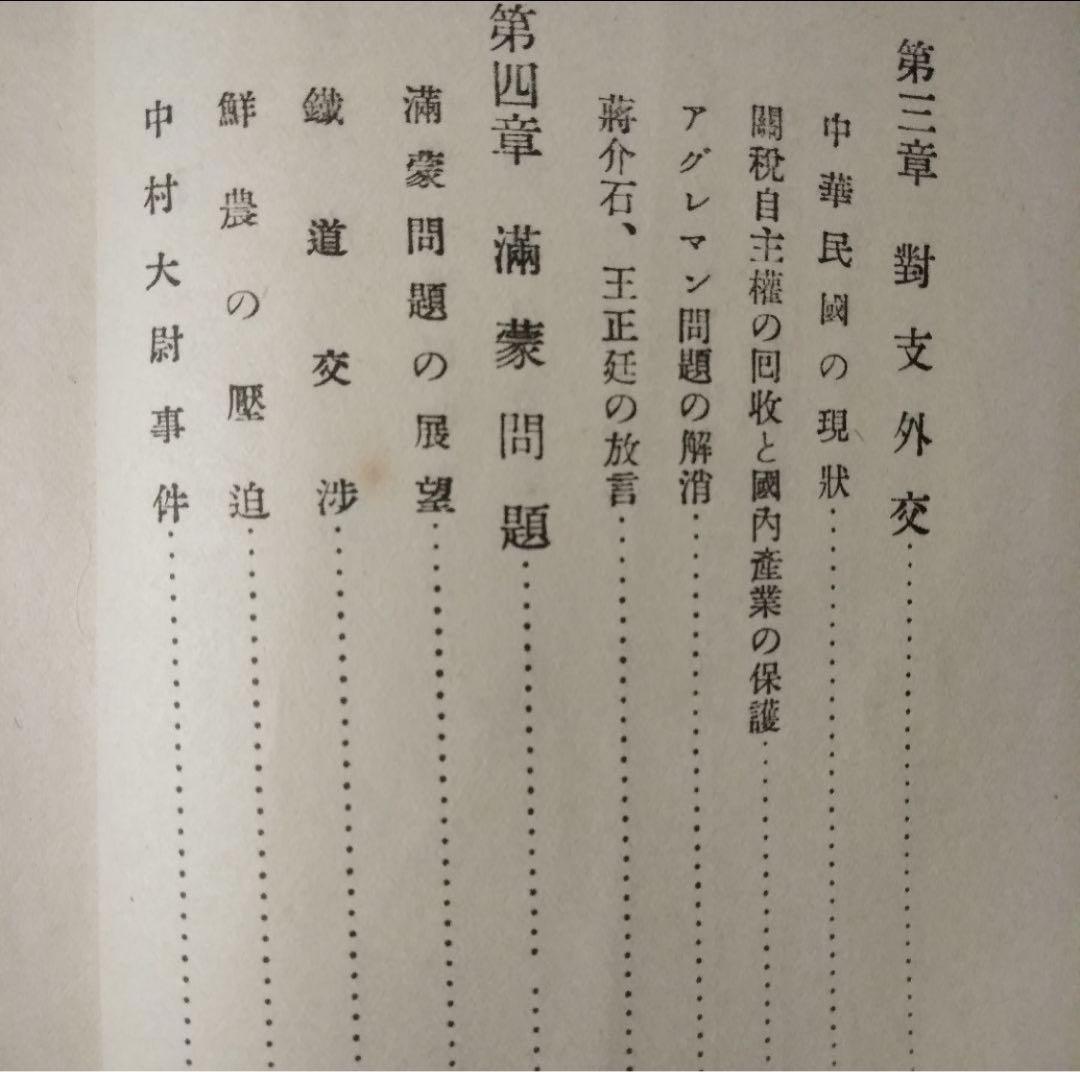 第三章 對支外交
中華民國の現狀
關稅自主權の回收と國內產業の保護
アグレマン問題の解消
蔣介石、王正廷の放言
第四章 滿蒙問題
滿蒙問題の展望
鐵道交涉
鮮農の壓迫
中村大尉事件